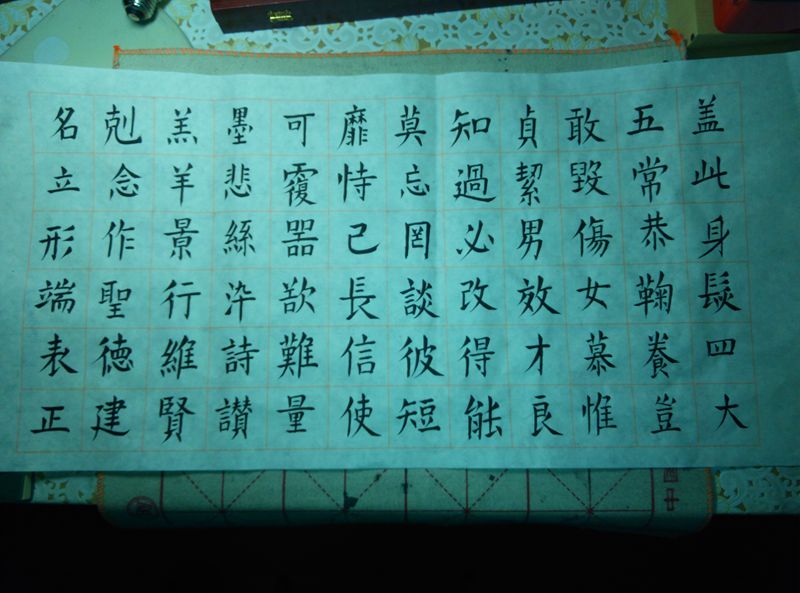 盖此身髮四大
五常恭鞠養豈
敢毀傷女慕惟
貞絜男效才良
知過必改得能
莫忘罔談彼短
靡恃己長信使
可覆器欲難量
墨悲絲染詩讃
羔羊景行維賢
剋念作聖德建
名立形端表正